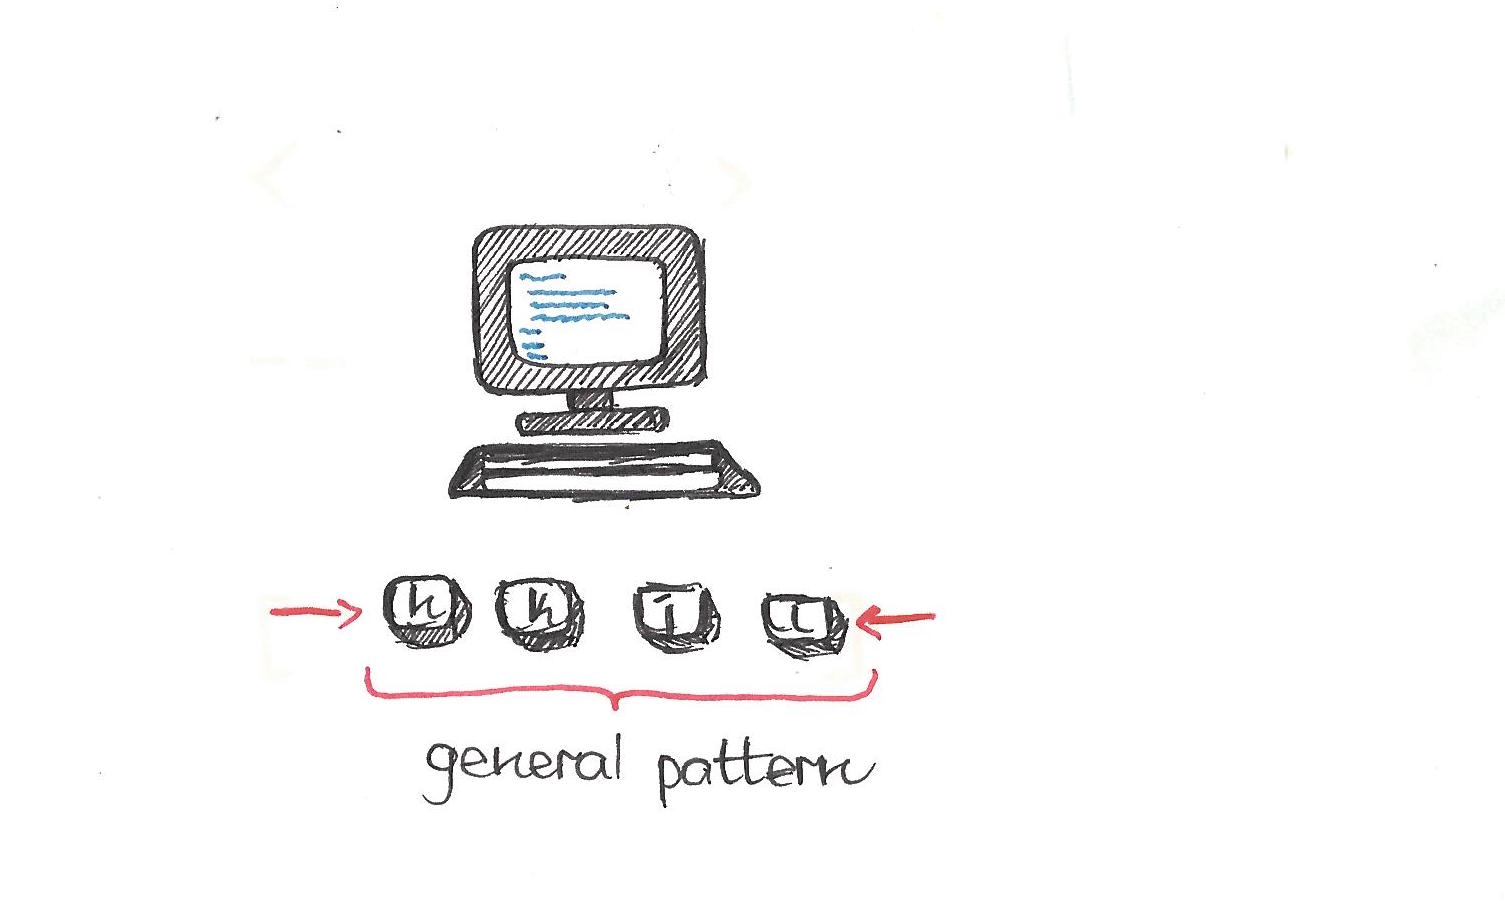 h
general pattern